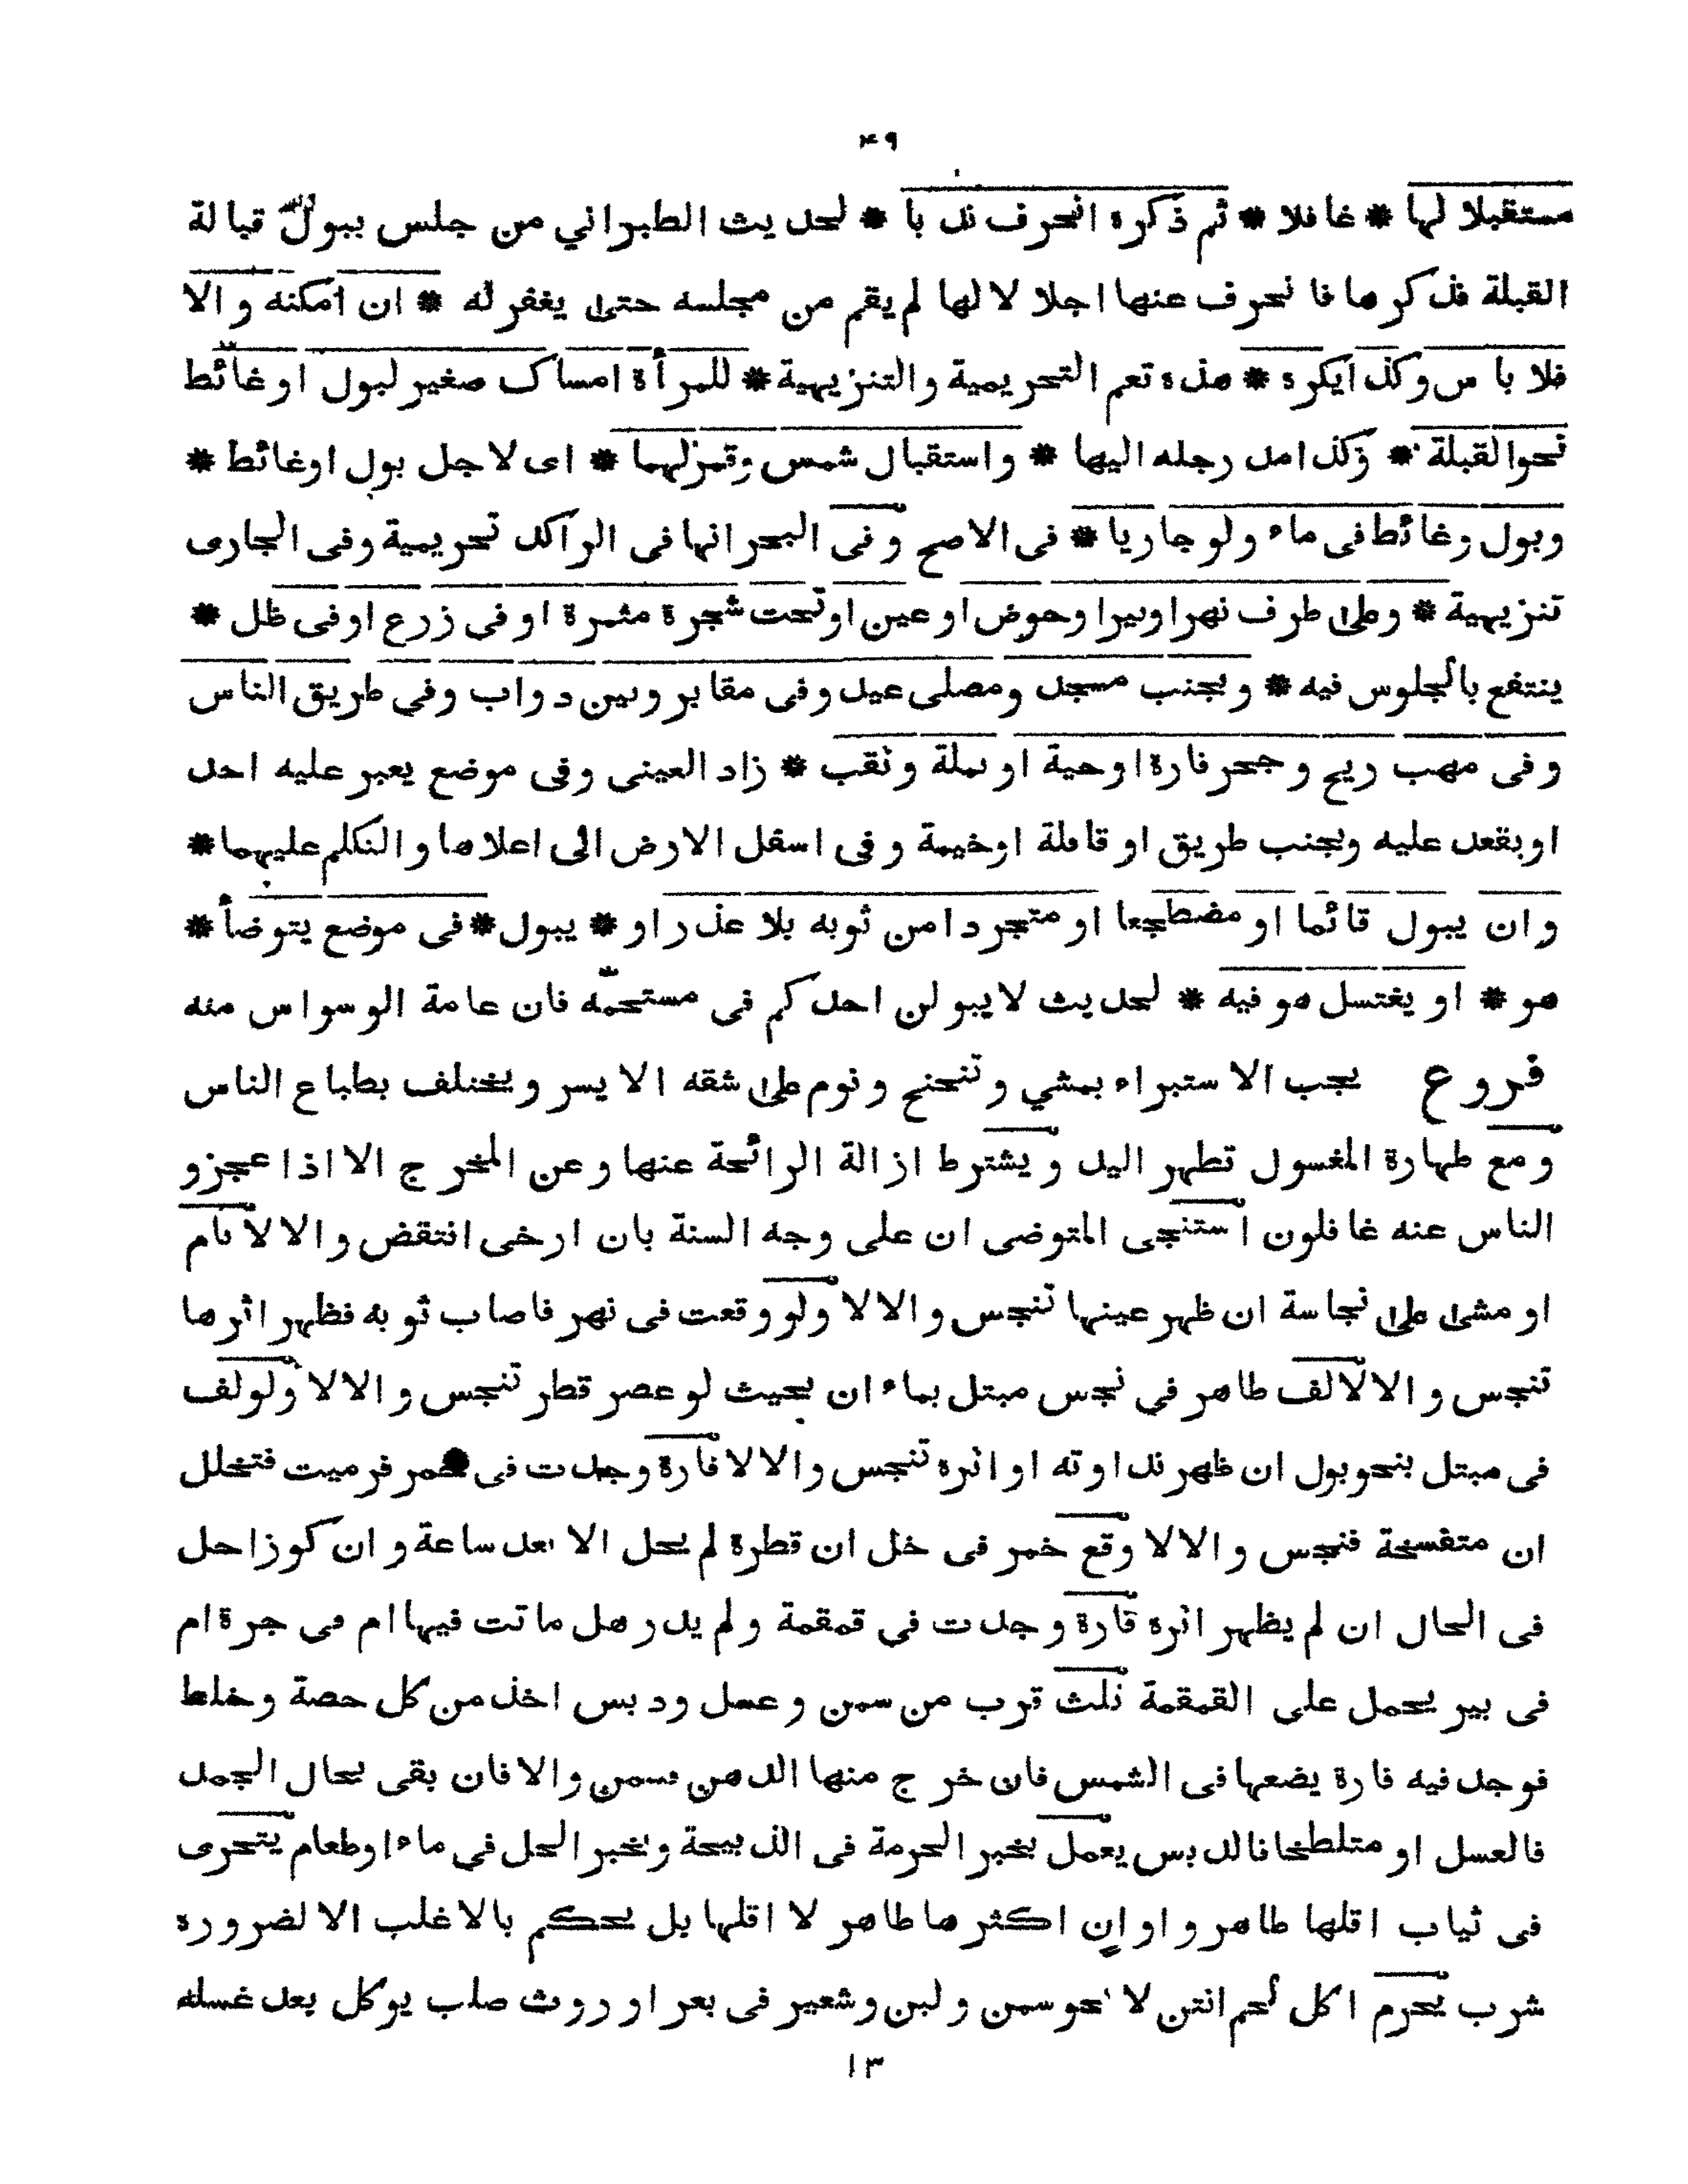 ۴۹
مستقبلا لها * غافلا * ثم ذكره انحرف ندبا * لحديث الطبراني من جلس يبول قبالة
القبلة فذكرها فانحرف عنها اجلالا لها لم يقم من مجلسه حتى يغفر له * ان امكنه والا
فلا باس وكذا يكره * هذه تعم التحريمية والتنزيهية * للمرأة امساك صغير لبول اوغائط
نحوالقبلة * وكذا مد رجله اليها * واستقبال شمس وقمر لهما * اى لاجل بول اوغائط *
وبول وغائط فى ماء ولو جاريا * فى الاصح وفى البحر انها فى الراكد تحريمية وفى الجارى
تنزيهية * وعلى طرف نهر اوبيرا وحوض اوعين اوتحت شجرة مثمرة اوفى زرع اوفى ظل *
ينتفع بالجلوس فيه * وبجنب مسجد ومصلى عيد وفى مقابر وبين دواب وفي طريق الناس
وفى مهب ريح وجحر فارة اوحية اونملة وثقب * زاد العينى وفى موضع يعبر عليه احد
اوبقعد عليه وبجنب طريق او قافلة اوخيمة وفى اسفل الارض الى اعلاها والتكلم عليهما *
وان يبول قائما اومضطجعا اومتجردا من ثوبه بلا عذر او * يبول * فى موضع يتوضأ *
هو * او يغتسل هو فيه * لحديث لايبولن احدكم فى مستحمه فان عامة الوسواس منه
فروع يجب الاستبراء بمشي وتنحنح ونوم على شقه الايسر ويختلف بطباع الناس
ومع طهارة المغسول تطهر اليد ويشترط ازالة الرائحة عنها وعن المخرج الااذا عجزو
الناس عنه غافلون استنجى المتوضى ان على وجه السنة بان ارخى انتقض والالا نام
او مشى على نجاسة ان ظهر عينها تنجس والالا ولو وقعت فى نهر فاصاب ثوبه فظهر اثرها
تنجس والالا لف طاهر في نجس مبتل بماء ان بحيث لوعصر قطر تنجس والالا ولولف
فى مبتل بنحوبول ان ظهر نداوته او اثره تنجس والالا فارة وجدت فى خمر فرميت فتخلل
ان متفسخة فنجس والالا وقع خمر فى خل ان قطرة لم يحل الا بعد ساعة وان كوزا حل
فى الحال ان لم يظهر اثره فارة وجدت في قمقمة ولم يدر هل ماتت فيها ام فى جرة ام
فى بير يحمل على القمقمة ثلث قرب من سمن وعسل ودبس اخذ من كل حصة وخلط
فوجد فيه فارة يضعها فى الشمس فان خرج منها الدهن فسمن والا فان بقى بحال الجمد
فالعسل او متلطخا فالدبس يعمل بخبر الحرمة فى الذبيحة وبخبر الحل في ماء اوطعام يتحرى
فى ثياب اقلها طاهر واوان اكثرها طاهر لا اقلها بل يحكم بالاغلب الا لضرورة
شرب يحرم اكل لحم انتن لا نحوسمن ولبن وشعير فى بعر او روث صلب يوكل بعد غسله
١٣